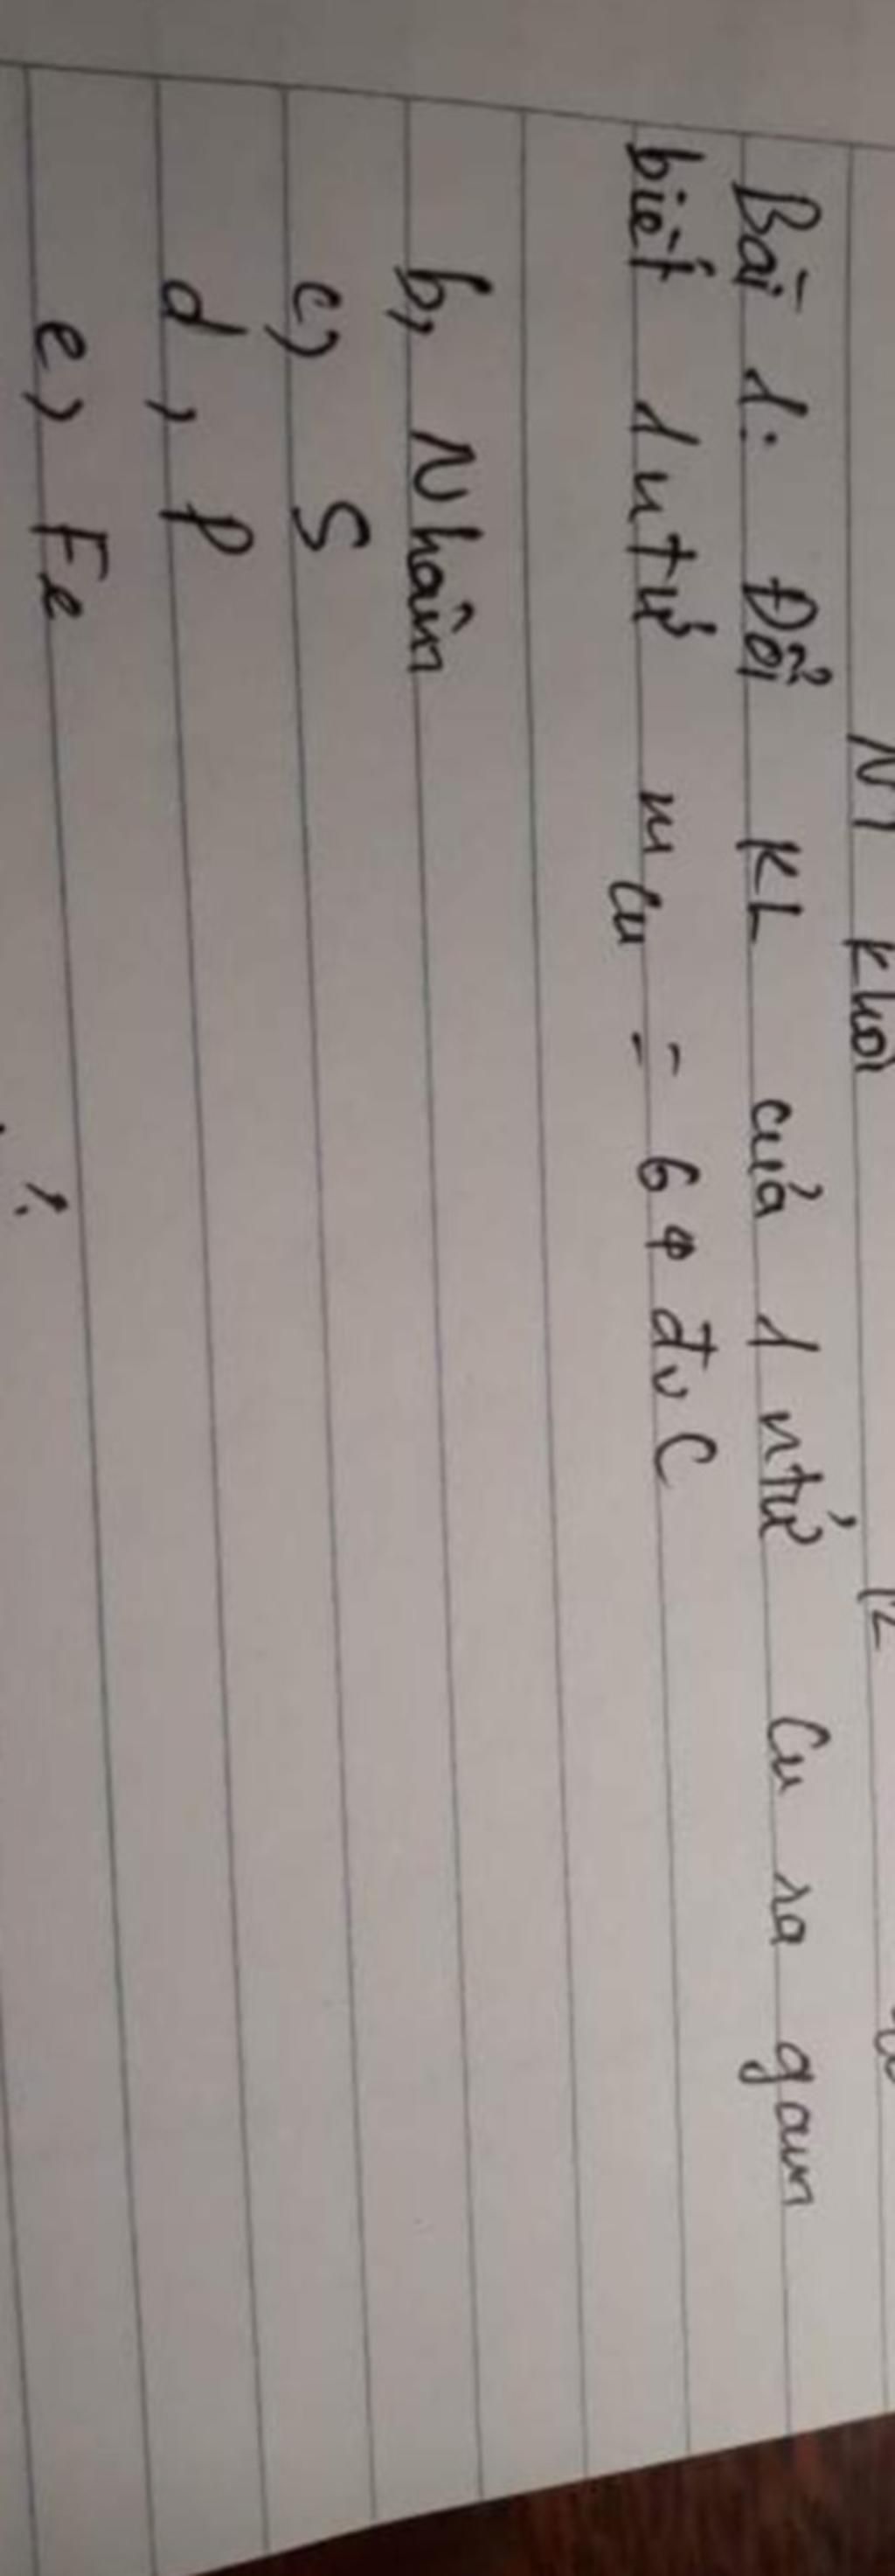 12
Bài 1: Đổi KL của 1 ntử Cu ra gam
biết 1 ntử mCu = 64 đvC
b, Nhôm
c, S
d, P
e, Fe